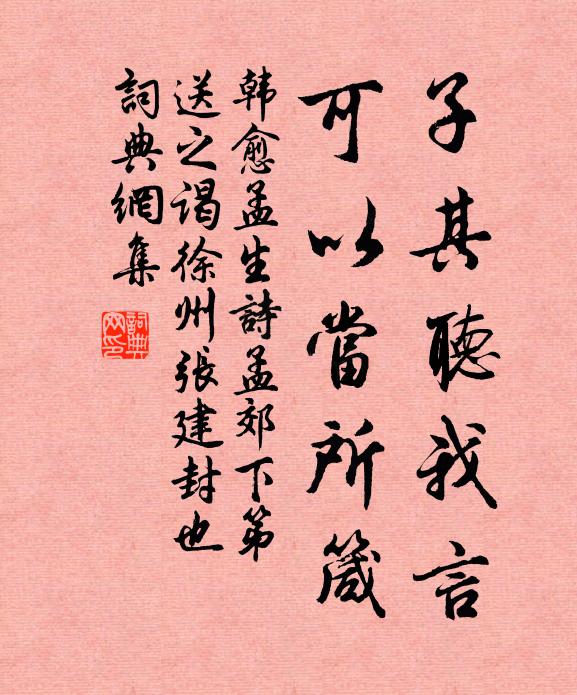 子其聽我言
可以當所箴
韩愈孟生詩孟郊下第
送之谒徐州張建封也
詞典網集
詞典
网印